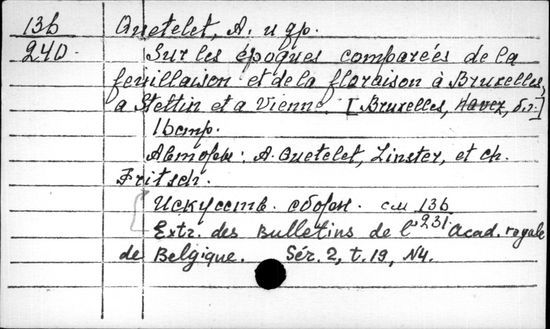 13б Quetelet, A. и др.
240. Sur les époques comparées de la
feuillaison et de la floraison à Bruxelles,
a Stettin et a Vienne. [Bruxelles, Havez, б.г.]
16 стр.
Авторы: A. Quetelet, Linster, et ch.
Fritsch.
Искусств. сборн. см 13б
231
Extr. des Bulletins de l' Acad. royale
de Belgique. Sér. 2, t. 19, N4.